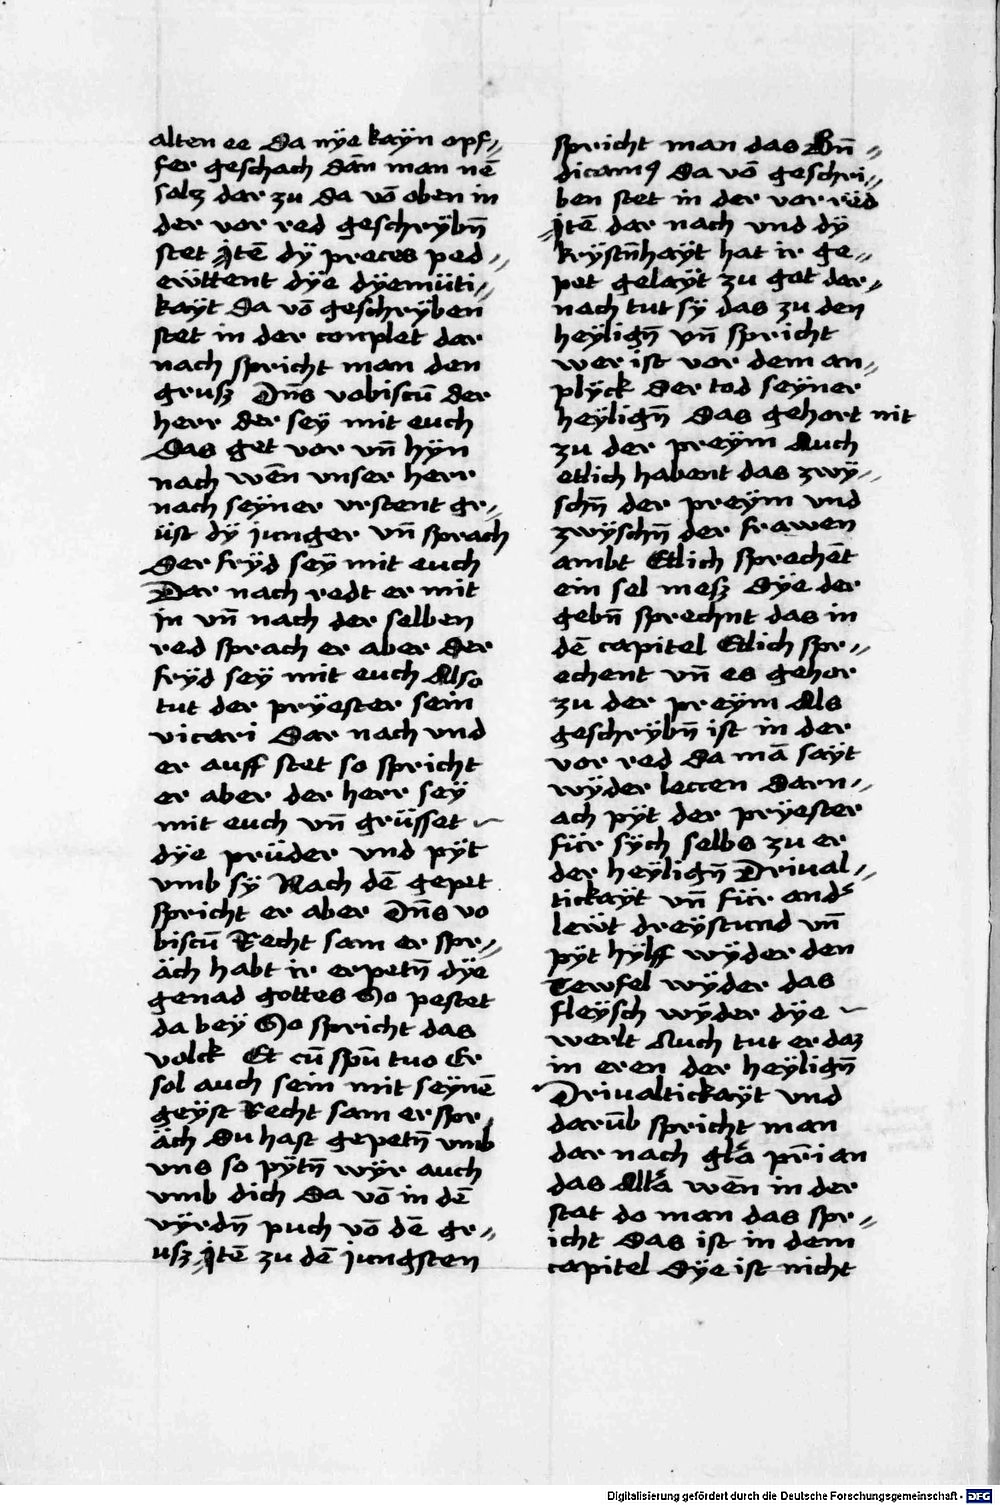 alten ee Da nÿe kaÿn opf⸗
fer geschach dān man nē
salcz dar zu da vō oben in
der vor red geschrÿbn̄
stet Jtē dÿ preces ped⸗
ewttent dÿe dÿemüti⸗
kaÿt Da vō geschrÿben
stet in der conplet dar
nach spricht man den
grusz Dn̄s vobiscū der
herr der seÿ mit euch
Das get vor vn̄ hÿn
nach wēn vnser herr
nach seÿner vrstent gr⸗
üst dÿ junger vn̄ sprach
Der frÿd seÿ mit euch
Dar nach redt er mit
in vn̄ nach der selben
red sprach er aber Der
frÿd seÿ mit euch Also
tut der prÿester sein
vicari Dar nach vnd
er auff stet so spricht
er aber der herr seÿ
mit euch vn̄ grüsset
dÿe prüder vnd pÿt
vmb sÿ Nach dē gepit
spricht er aber Dn̄s vo
biscū Recht sam er spr⸗
äch habt ir erpetn̄ dÿe
genad gottes So pestet
da beÿ So spricht das
volck Et cū spū tuo Er
sol auch sein mit seÿnē
geÿst Recht sam er spr
äch Du hast gepetn̄ vmb
vns so pÿtn̄ wÿr auch
vmb dich Da vō in dē
vÿrdn̄ puch vō dē gr⸗
usz Jtē zu dē jungsten
spricht man das Bn̄⸗
dicamꝯ Da vō geschri⸗
ben stet in der vor red
Jtē dar nach vnd dÿ
krÿstn̄haÿt hat ir ge⸗
pet gelaÿt zu got dar⸗
nach tut sÿ das zu den
heÿlign̄ vn̄ spricht
wer ist vor dem an⸗
plÿck Der tod seÿner
heÿlign̄ Das gehort nit
zu der preÿm Auch
etlich habent das zwÿ⸗
schn̄ der preÿm vnd
zwÿschn̄ der frawen
ambt Etlich sprechēt
ein sel mesz Dÿe der
gebn̄ sprechnt das in
dē capitel Etlich spr⸗
echent vn̄ es gehor
zu der preÿm Als
geschrÿbn̄ ist in der
vor red Da mā saÿt
wÿder leccen Darn⸗
ach pÿt der prÿester
für sÿch selbs zu er
der heÿlign̄ Driual⸗
tickaÿt vn̄ für and͛
lewt dreÿstund vn̄
pÿt hÿlff wÿder den
Tewfel wÿder das
fleÿsch wÿder dÿe
werlt Auch tut er daz
in eren der heÿlign̄
Driualtickaÿt vnd
darūb spricht man
dar nach gl̄a pr̄i an
das All̄a wēn in der
stat do man das spr⸗
icht Das ist in dem
capitel Dÿe ist nicht
Digitalisierung gefördert durch die Deutsche Forschungsgemeinschaft - DFG